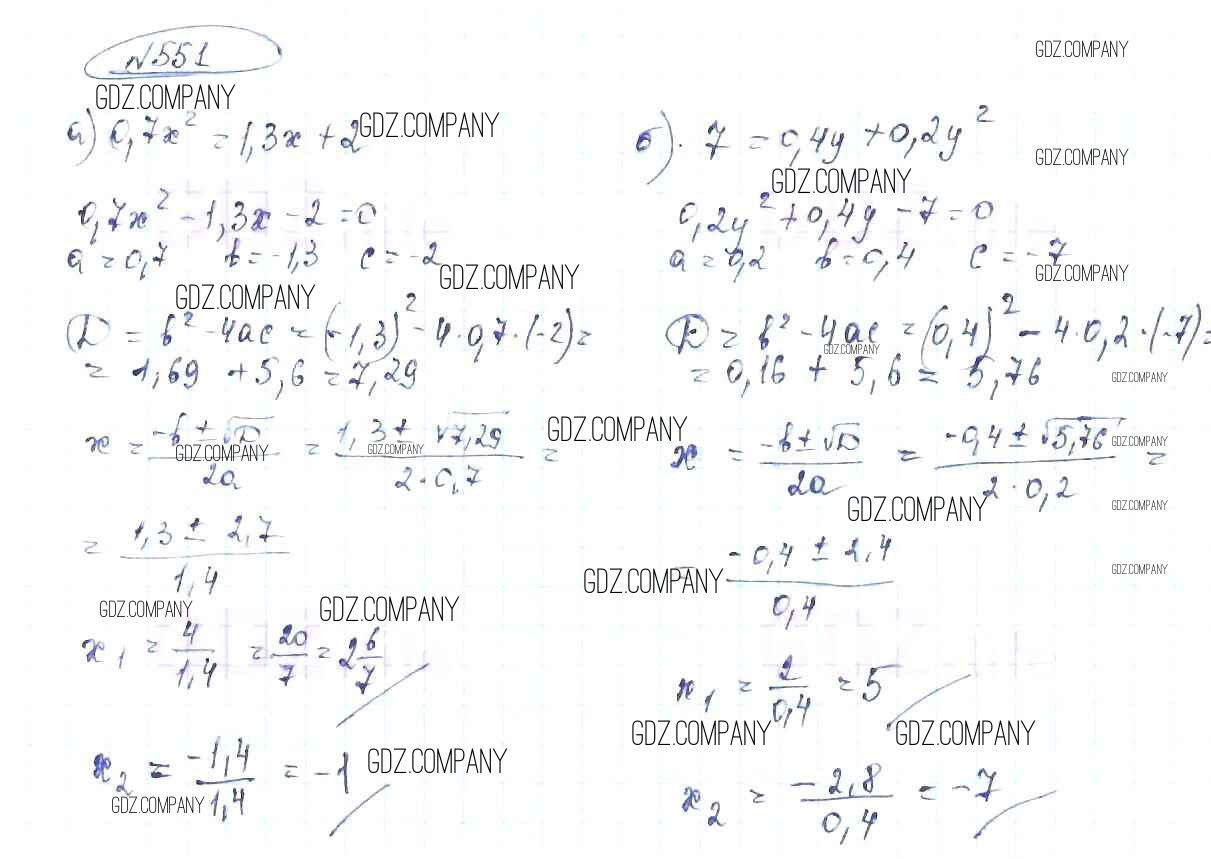 №551
GDZ.COMPANY
GDZ.COMPANY
а) 0,7x² = 1,3x + 2 GDZ.COMPANY
0,7x² - 1,3x - 2 = 0
a = 0,7 b = -1,3 c = -2
GDZ.COMPANY
GDZ.COMPANY
D = b² - 4ac = (-1,3)² - 4·0,7·(-2) =
= 1,69 + 5,6 = 7,29
x = (-b ± √D)/2a = (1,3 ± √7,29)/(2·0,7) =
GDZ.COMPANY
GDZ.COMPANY
GDZ.COMPANY
= (1,3 ± 2,7)/1,4
GDZ.COMPANY
GDZ.COMPANY
x₁ = 4/1,4 = 20/7 = 2 6/7
x₂ = -1,4/1,4 = -1 GDZ.COMPANY
GDZ.COMPANY
б). 7 = 0,4y + 0,2y²
GDZ.COMPANY
GDZ.COMPANY
0,2y² + 0,4y - 7 = 0
a = 0,2 b = 0,4 c = -7
GDZ.COMPANY
D = b² - 4ac = (0,4)² - 4·0,2·(-7) =
GDZ.COMPANY
= 0,16 + 5,6 = 5,76
GDZ.COMPANY
x = (-b ± √D)/2a = (-0,4 ± √5,76)/(2·0,2) =
GDZ.COMPANY
GDZ.COMPANY
GDZ.COMPANY
= (-0,4 ± 2,4)/0,4
GDZ.COMPANY
GDZ.COMPANY
x₁ = 2/0,4 = 5
GDZ.COMPANY
GDZ.COMPANY
x₂ = -2,8/0,4 = -7